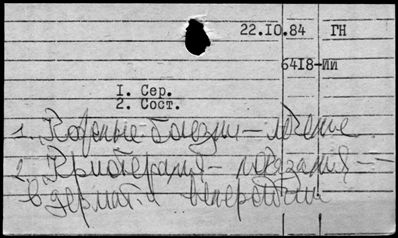 22.10.84 ГН
6418-ии
1. Сер.
2. Сост.
1. Кожные болезни – лечение
2. Криотерапия – показания –
в дермат. и венерологии